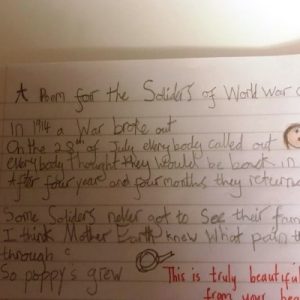 A Poem for the Soliders of World War
In 1914 a War broke out
On the 28th of July everybody called out
everybody thought they would be back in
After four years and four months they returne
Some Soliders never got to see their fam
I think Mother Earth knew What pain th
through
So poppy's grew
This is truly beautiful
from your hea